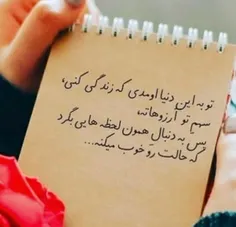 تو به این دنیا اومدی که زندگی کنی،
سهم تو آرزوهاته،
پس به دنبال همون لحظه هایی بگرد
که حالت رو خوب میکنه...